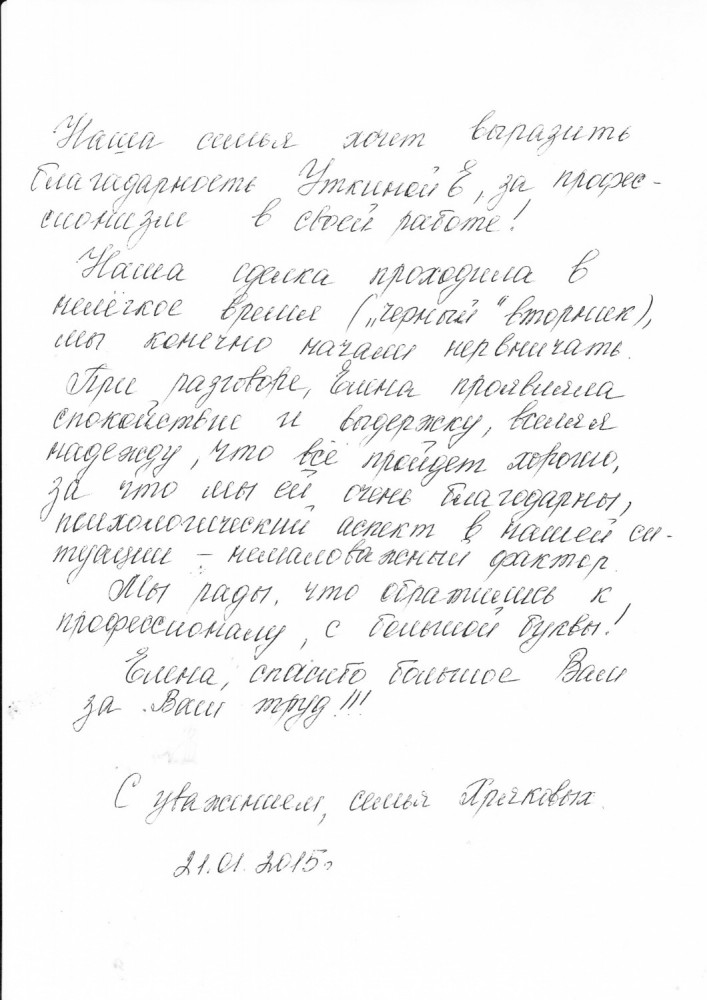 Наша семья хочет выразить
благадарность Уткиной Е, за профес-
сионизм в своей работе!
Наша сделка проходила в
нелёгкое время („черный“ вторник),
мы конечно начали нервничать.
При разговоре, Елена проявляла
спокойствие и выдержку, вселяя
надежду, что всё пройдет хорошо,
за что мы ей очень благодарны,
психологический аспект в нашей си-
туации - немаловажный фактор.
Мы рады, что обратились к
профессионалу, с большой буквы!
Елена, спасибо большое Вам
за Ваш труд!!!
С уважением, семья Хряковых.
21.01.2015г